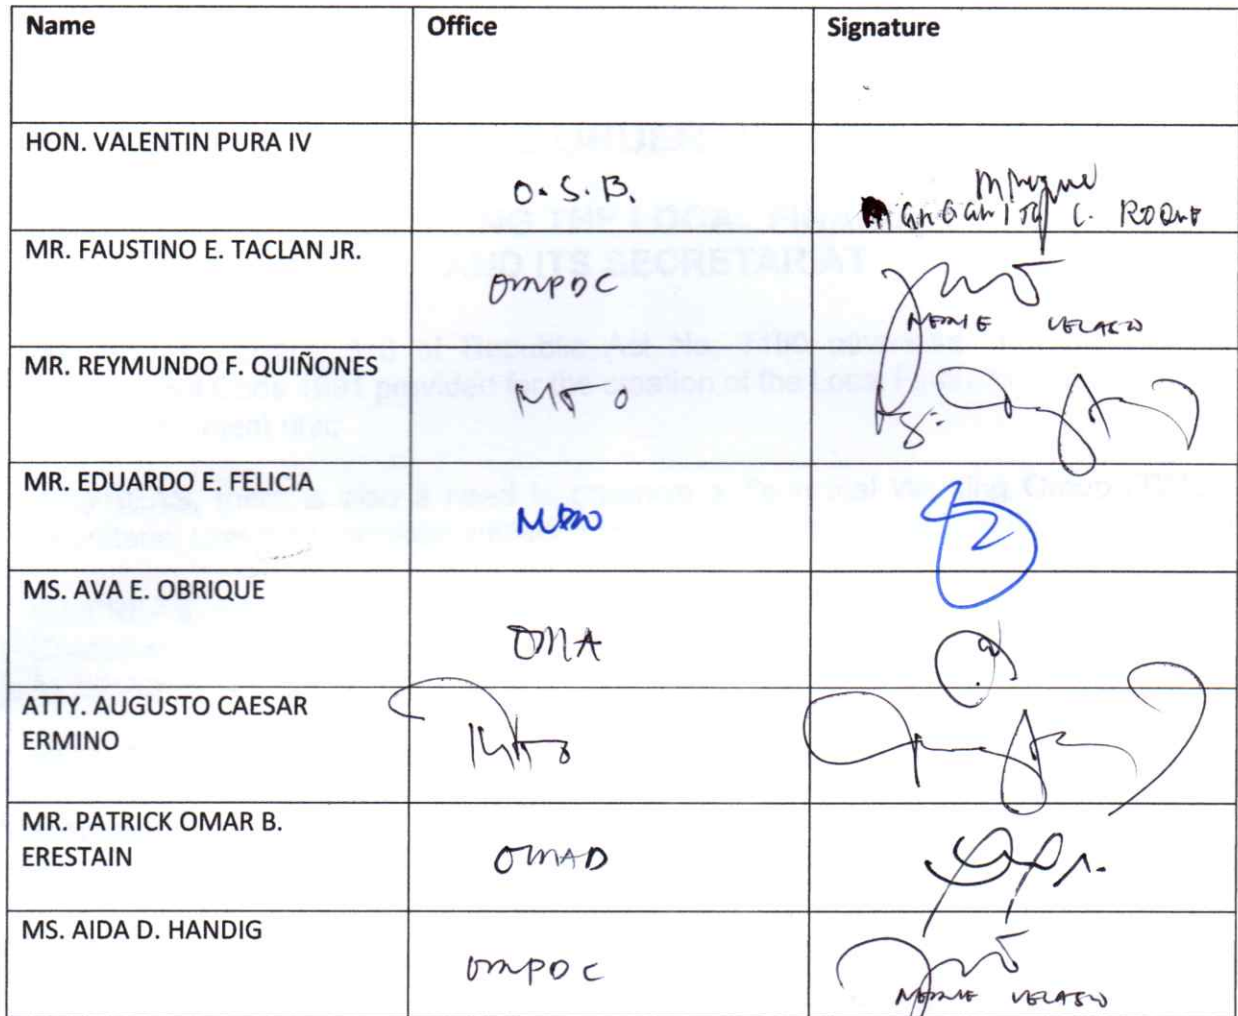 Name Office Signature
HON. VALENTIN PURA IV
O.S.B.
MARGARITA C. ROQUE
MR. FAUSTINO E. TACLAN JR.
OMPDC
VELASCO
MR. REYMUNDO F. QUIÑONES
MTO
MR. EDUARDO E. FELICIA
MBO
MS. AVA E. OBRIQUE
OMA
ATTY. AUGUSTO CAESAR
ERMINO
MR. PATRICK OMAR B.
ERESTAIN
OMAD
MS. AIDA D. HANDIG
OMPDC
VELASCO